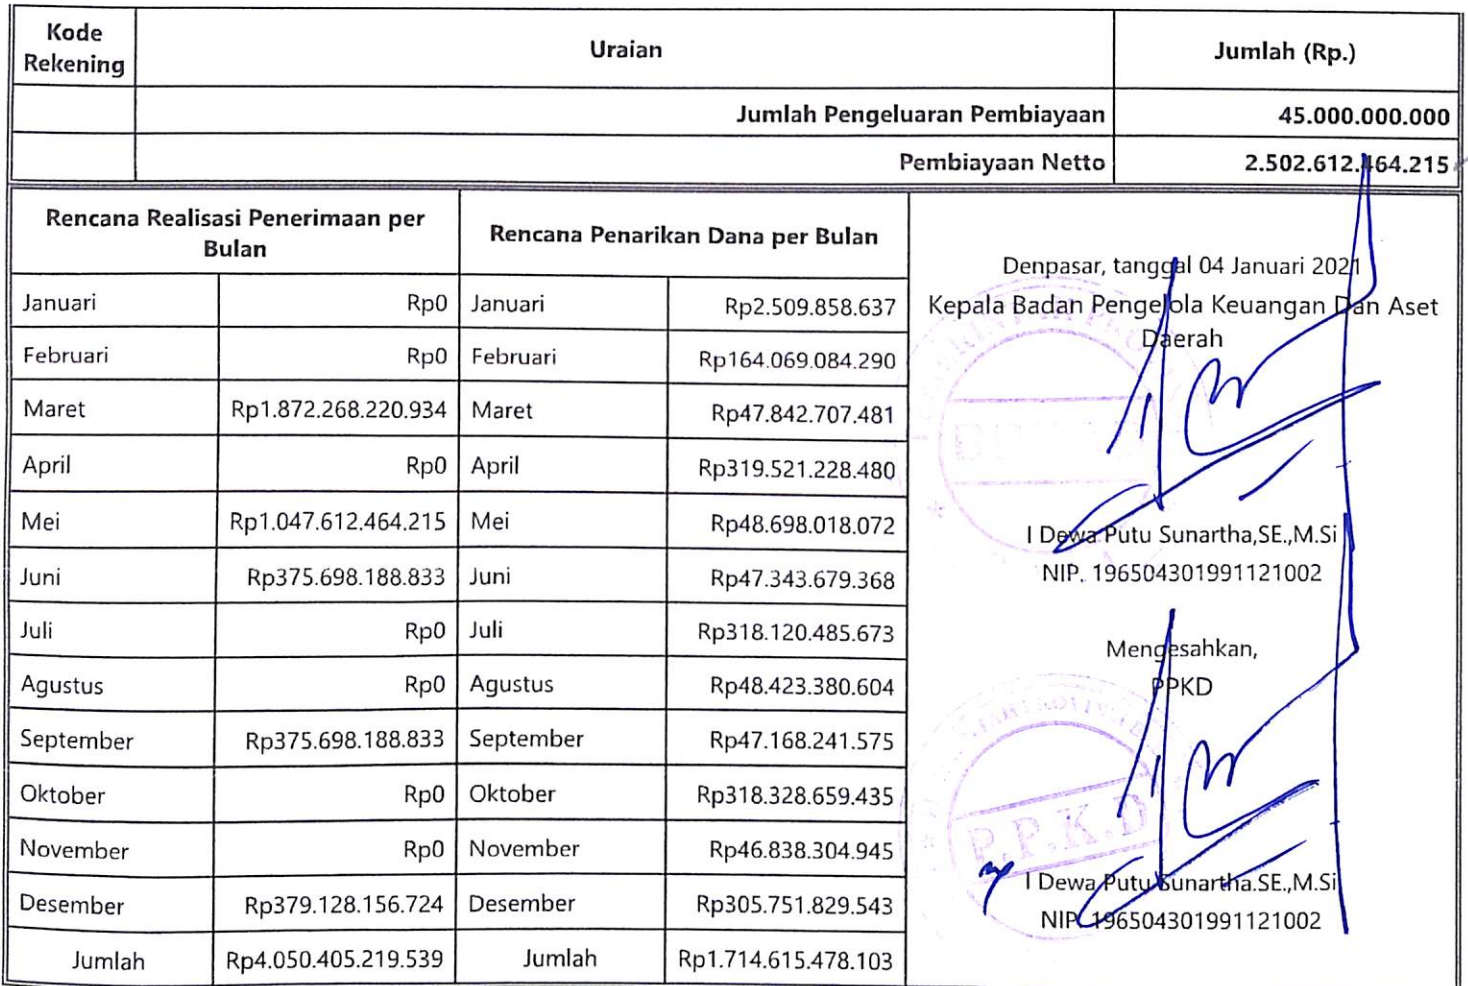 Kode Rekening Uraian Jumlah (Rp.)
Jumlah Pengeluaran Pembiayaan 45.000.000.000
Pembiayaan Netto 2.502.612.464.215
Rencana Realisasi Penerimaan per Bulan Rencana Penarikan Dana per Bulan
Januari Rp0 Januari Rp2.509.858.637
Februari Rp0 Februari Rp164.069.084.290
Maret Rp1.872.268.220.934 Maret Rp47.842.707.481
April Rp0 April Rp319.521.228.480
Mei Rp1.047.612.464.215 Mei Rp48.698.018.072
Juni Rp375.698.188.833 Juni Rp47.343.679.368
Juli Rp0 Juli Rp318.120.485.673
Agustus Rp0 Agustus Rp48.423.380.604
September Rp375.698.188.833 September Rp47.168.241.575
Oktober Rp0 Oktober Rp318.328.659.435
November Rp0 November Rp46.838.304.945
Desember Rp379.128.156.724 Desember Rp305.751.829.543
Jumlah Rp4.050.405.219.539 Jumlah Rp1.714.615.478.103
Denpasar, tanggal 04 Januari 2021
Kepala Badan Pengelola Keuangan Dan Aset
Daerah
I Dewa Putu Sunartha,SE.,M.Si
NIP. 196504301991121002
Mengesahkan,
PPKD
P.P.K.D
I Dewa Putu Sunartha.SE.,M.Si
NIP. 196504301991121002